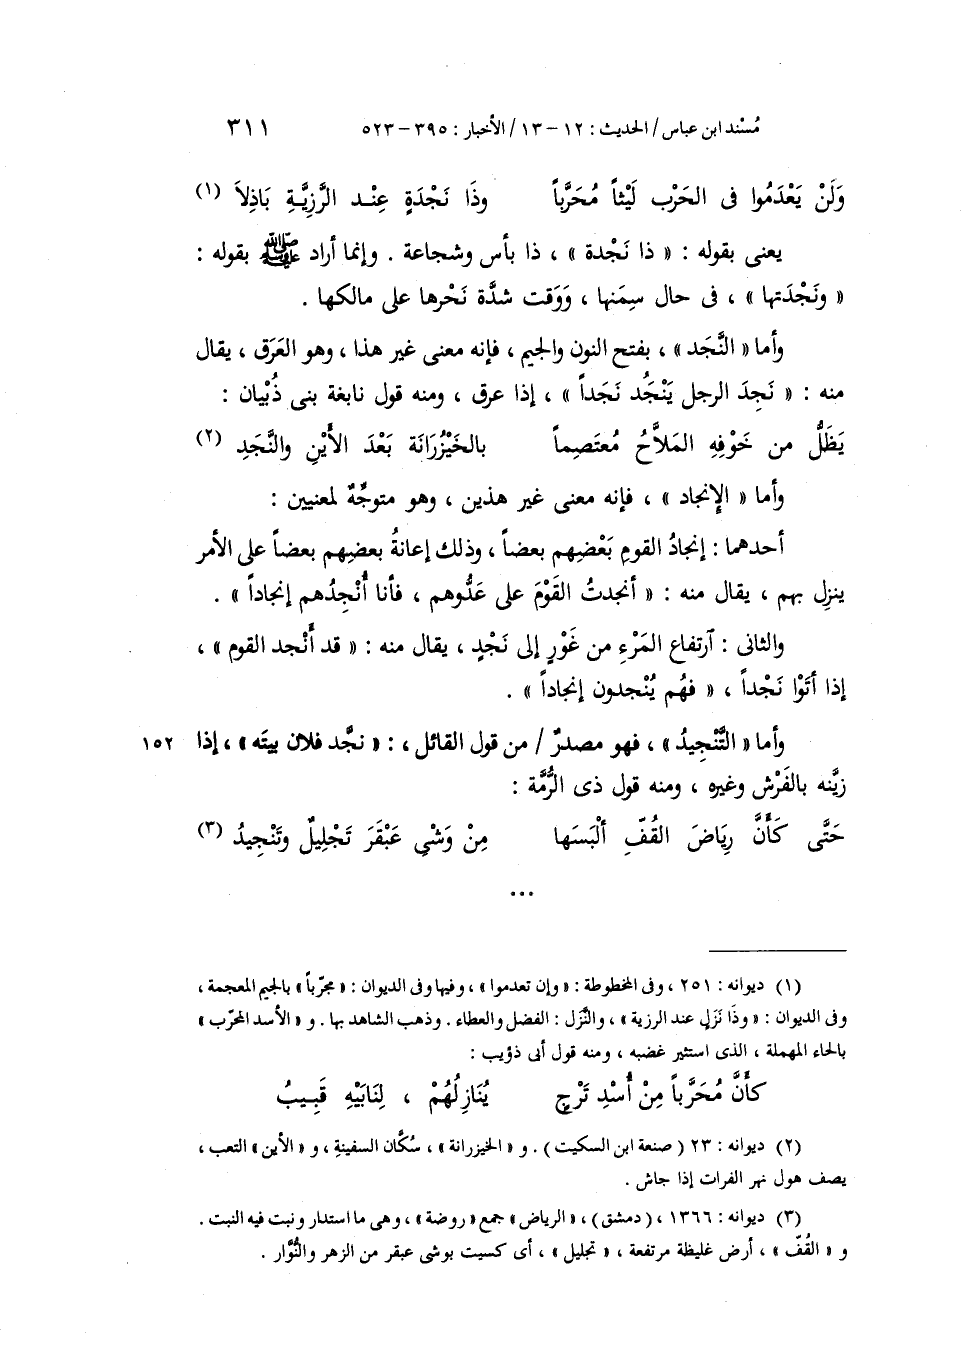 مُسْند ابن عباس / الحديث : ١٢ - ١٣ / الأخبار : ٣٩٥ - ٥٢٣ ٣١١
وَلَنْ يَعْدَمُوا فى الحَرْب لَيْثاً مُحَرَّباً وذَا نَجْدَةٍ عِنْد الرَّزِيَّةِ بَاذِلاَ (١)
يعنى بقوله : « ذا نَجْدة » ، ذا بأس وشجاعة . وإنما أراد ﷺ بقوله :
« ونَجْدَتها » ، فى حال سِمَنها ، وَوَقت شدَّة نَحْرها على مالكها .
وأما « النَّجَد » ، بفتح النون والجيم ، فإنه معنى غير هذا ، وهو العَرَق ، يقال
منه : « نَجِدَ الرجل يَنْجَُد نَجَداً » ، إذا عرق ، ومنه قول نابغة بنى ذُبْيان :
يَظَلُّ من خَوْفِهِ المَلاَّحُ مُعتَصِماً بالخَيْزُرَانَة بَعْدَ الأَيْنِ والنَّجَدِ (٢)
وأما « الإنجاد » ، فإنه معنى غير هذين ، وهو متوجِّهٌ لمعنيين :
أحدهما : إنجادُ القومِ بَعْضِهم بعضاً ، وذلك إعانةُ بعضِهم بعضاً على الأمر
ينزِل بهم ، يقال منه : « أنجدتُ القَوْمَ على عَدُوهم ، فأنا أُنْجِدُهم إنجاداً » .
والثانى : آرتفاع المَرْءِ من غَوْرٍ إلى نَجْدٍ ، يقال منه : « قد أَنْجد القوم » ،
إذا أتَوْا نَجْداً ، « فهُم يُنْجدون إنجاداً » .
وأما « التَّنْجِيدُ » ، فهو مصدرٌ / من قول القائل ، : « نجَّد فلان بيتَه » ، إذا ١٥٢
زيَّنه بالفَرْش وغيره ، ومنه قول ذى الرُّمَّة :
حَتَّى كَأَنَّ رِيَاضَ القُفِّ ألْبَسَها مِنْ وَشْىِ عَبْقَرَ تَجْلِيلٌ وتَنْجِيدُ (٣)
...
(١) ديوانه : ٢٥١ ، وفى المخطوطة : « وإن تعدموا » ، وفيها وفى الديوان : « مجرّباً » بالجيم المعجمة ،
وفى الديوان : « وذَا نَزَلٍ عند الرزية » ، والنَّزَل : الفضل والعطاء . وذهب الشاهد بها . و « الأسد المحرّب »
بالحاء المهملة ، الذى استثير غضبه ، ومنه قول أبى ذؤيب :
كأَنَّ مُحَرَّباً مِنْ أُسْدِ تَرْجٍ يُنَازِلُهُمْ ، لِنَابَيْهِ قَبِيبُ
(٢) ديوانه : ٢٣ ( صنعة ابن السكيت ) . و « الخيزرانة » ، سُكَّان السفينة ، و « الأين » التعب ،
يصف هول نهر الفرات إذا جاش .
(٣) ديوانه : ١٣٦٦ ، ( دمشق ) ، « الرياض » جمع « روضة » ، وهى ما استدار ونبت فيه النبت .
و « القُفّ » ، أرض غليظة مرتفعة ، « تجليل » ، أى كسيت بوشى عبقر من الزهر والنُّوَّار .